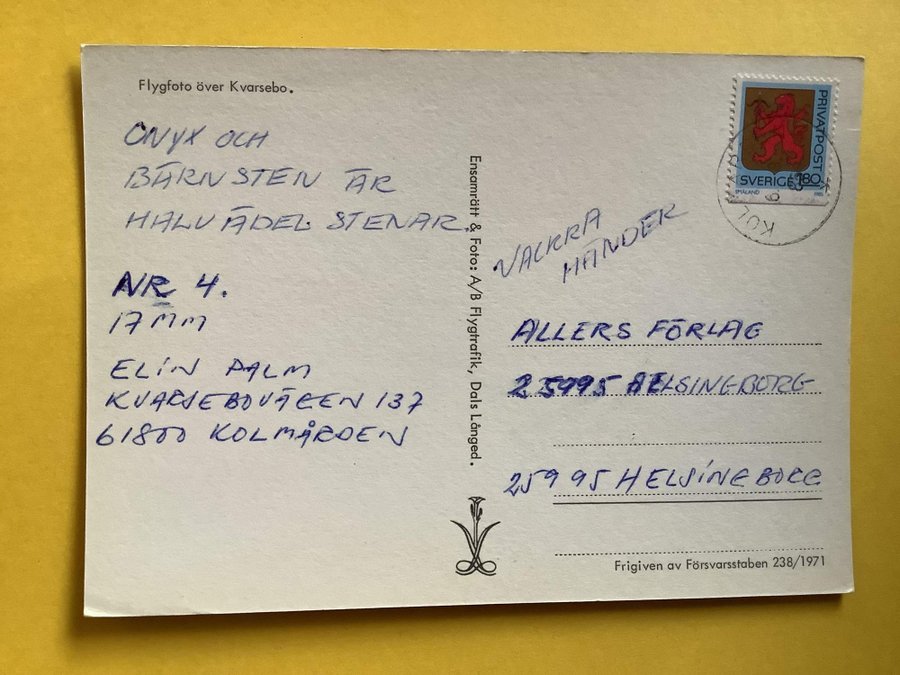 Flygfoto över Kvarsebo.
ONYX OCH
BÄRNSTEN ÄR
HALVÄDEL STENAR.
NR 4.
17 MM
ELIN PALM
KVARSEBOVÄGEN 137
61800 KOLMÅRDEN
Ensamrätt & Foto: A/B Flygtrafik, Dals Långed.
PRIVATPOST
SVERIGE 180
SMÅLAND
KOL
VACKRA
HÄNDER
ALLERS FÖRLAG
25995 HELSINGBORG
25995 HELSINGBORG
Frigiven av Försvarsstaben 238/1971